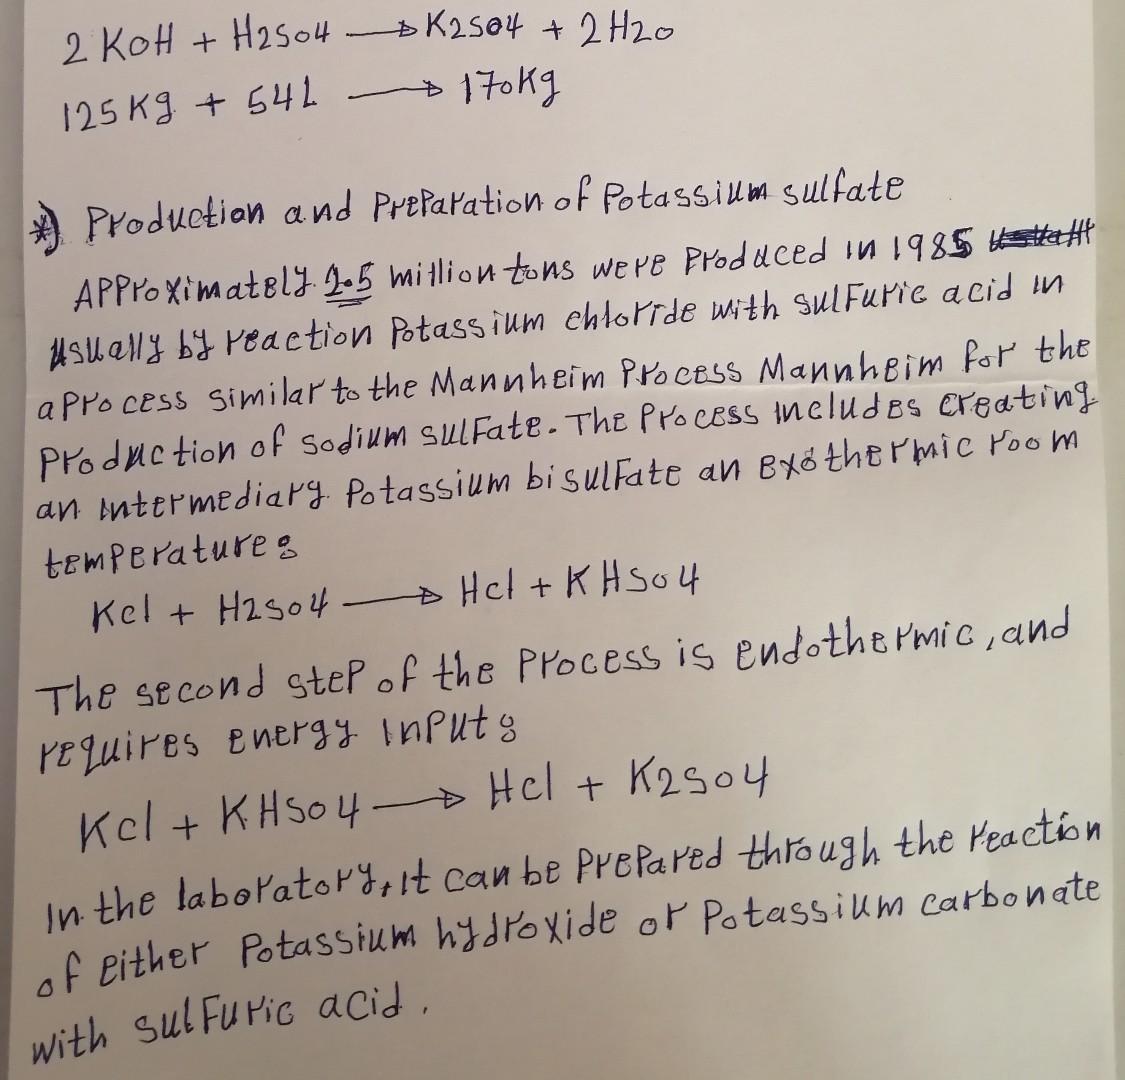 2 KOH + H2SO4 → K2SO4 + 2H2O
125Kg + 54L → 170Kg
*) Production and Preparation of Potassium sulfate
Approximately 2.5 million tons were Produced in 1985
usually by reaction Potassium chloride with sulfuric acid in
a process similar to the Mannheim Process Mannheim for the
Production of sodium sulfate. The Process includes creating
an intermediary Potassium bisulfate an exothermic room
temperature:
Kcl + H2SO4 → Hcl + KHSO4
The second step of the Process is endothermic, and
requires energy input:
Kcl + KHSO4 → Hcl + K2SO4
In the laboratory, it can be Prepared through the reaction
of either Potassium hydroxide or Potassium carbonate
with sulfuric acid.